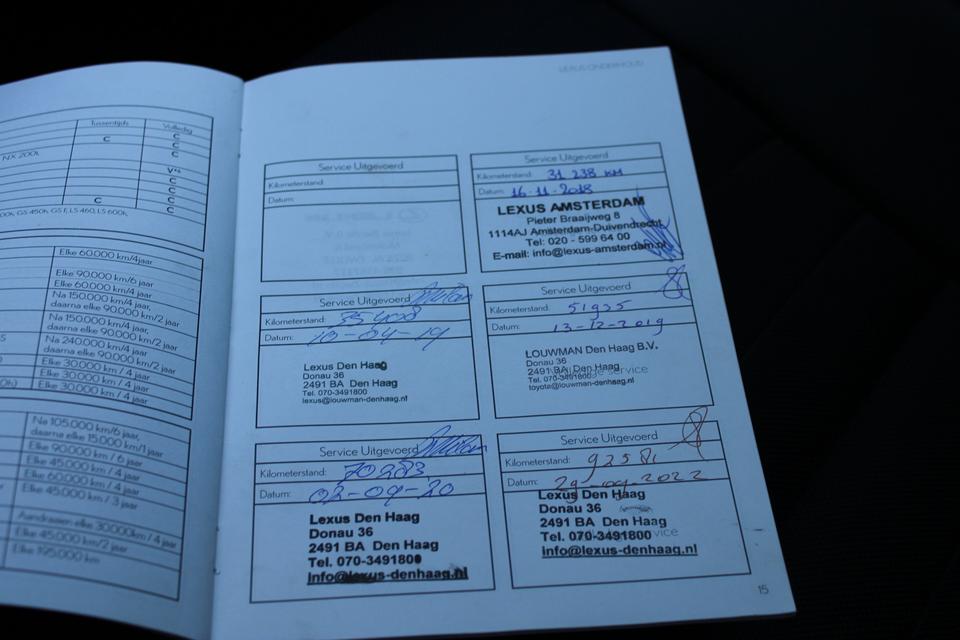 Tussentijds Volledig
C C
C
NX 200t C
V
C
C
C C
GS 450h, GS F, LS 460, LS 600h,
Elke 60.000 km/4jaar
Elke 90.000 km/6 jaar
Elke 60.000 km/4 jaar
Na 150.000 km/4 jaar,
daarna elke 90.000 km/2 jaar
Na 150.000 km/4 jaar,
daarna elke 90.000 km/2 jaar
Na 240.000 km/4 jaar
daarna elke 90.000 km/2 jaar
Elke 30.000 km / 4 jaar
Elke 30.000 km / 4 jaar
Elke 30.000 km / 4 jaar
Na 105.000 km/6 jaar,
daarna elke 15.000 km/1 jaar
Elke 90.000 km / 6 jaar
Elke 45.000 km / 4 jaar
Elke 60.000 km / 4 jaar
Elke 45.000 km / 3 jaar
Aandraaien elke 30.000km / 4 jaar
Elke 45.000 km/2 jaar
LEXUS ONDERHOUD
Service Uitgevoerd
Kilometerstand:
Datum:
Service Uitgevoerd
Kilometerstand: 31 238 KM
Datum: 16-11-2018
LEXUS AMSTERDAM
Pieter Braaijweg 8
1114AJ Amsterdam-Duivendrecht
Tel: 020 - 599 64 00
E-mail: info@lexus-amsterdam.nl
Service Uitgevoerd
Kilometerstand: 35408
Datum: 10-04-19
Lexus Den Haag
Donau 36
2491 BA Den Haag
Tel. 070-3491800
lexus@louwman-denhaag.nl
Service Uitgevoerd
Kilometerstand: 51935
Datum: 13-12-2019
LOUWMAN Den Haag B.V.
Donau 36
2491 BA Den Haag
Tel. 070-3491800
toyota@louwman-denhaag.nl
service
Service Uitgevoerd
Kilometerstand: 70283
Datum: 02-09-20
Lexus Den Haag
Donau 36
2491 BA Den Haag
Tel. 070-3491800
info@lexus-denhaag.nl
Service Uitgevoerd
Kilometerstand: 92581
Datum: 29-09-2022
Lexus Den Haag
Donau 36
2491 BA Den Haag
Tel. 070-3491800
info@lexus-denhaag.nl
service
15